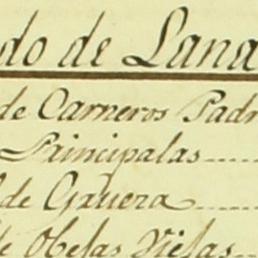 do de Lana
de Carneros Padr
Principalas
de Gruera
de Obejas Viejas